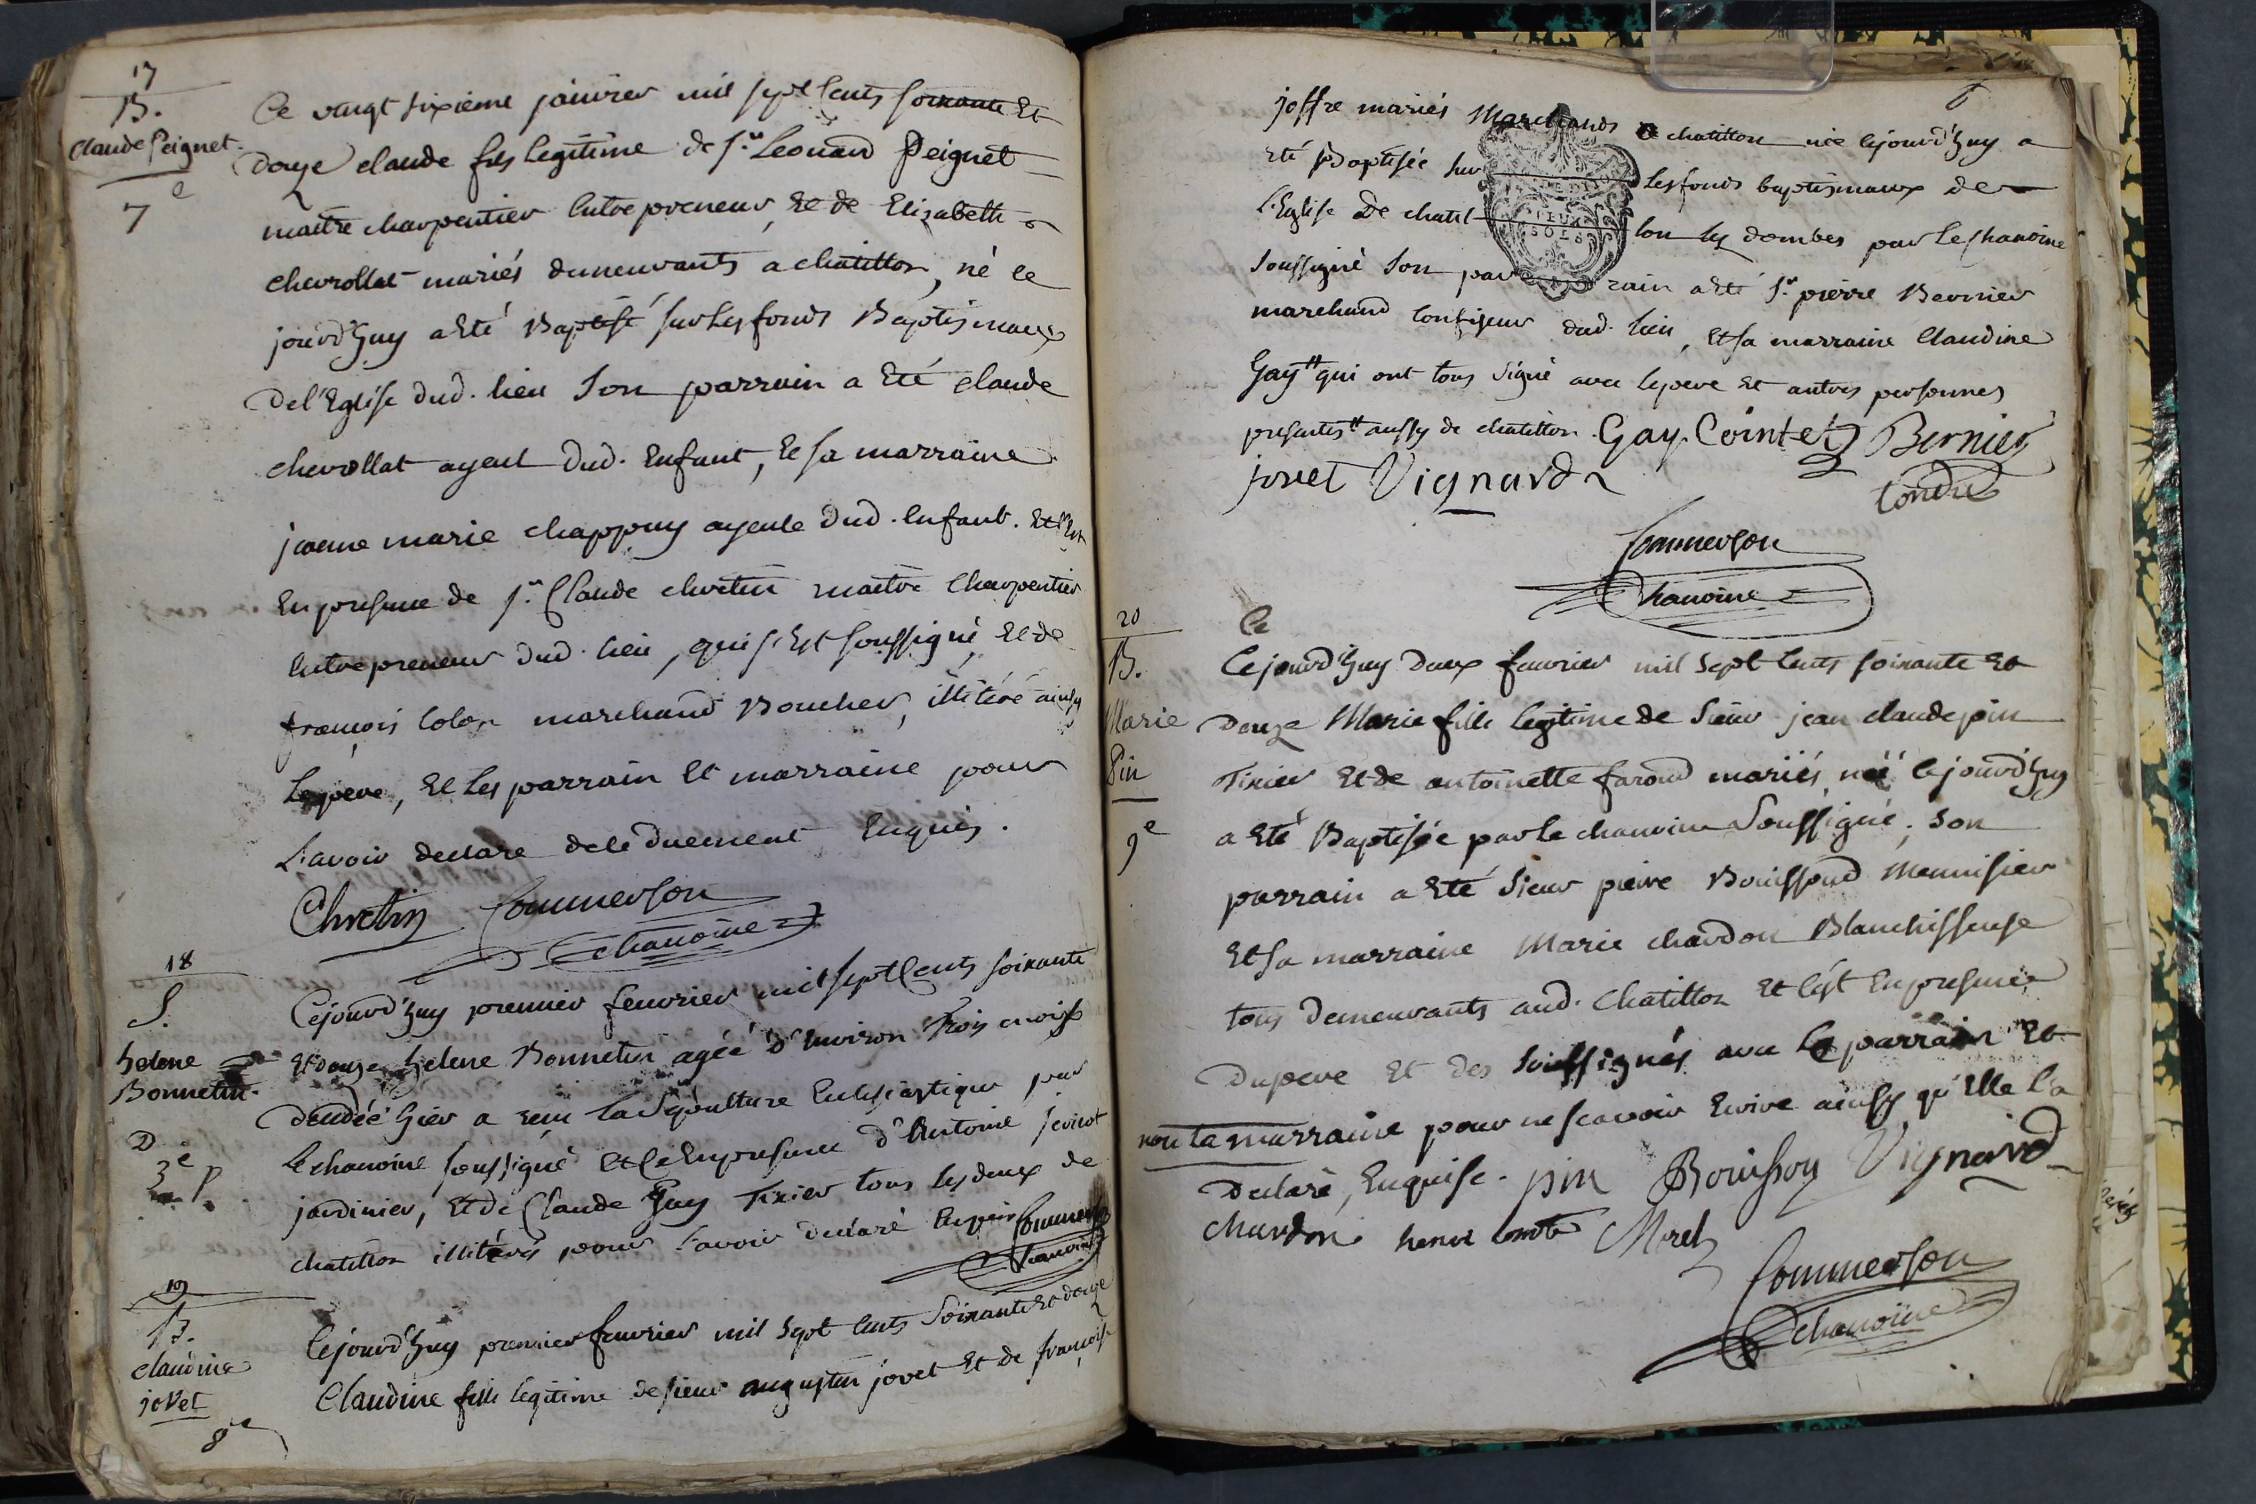 17
B.
Claude Peignet.
7e
Ce vingt sixieme janvier mil sept cents soixante Et
Douze claude fils legitime de Sr. Leonard Peignet
maitre charpentier Entrepreneur, Et de Elizabeth
chevrollat mariés demeurants a chatillon, né ce
jourd'huy a Eté Baptisé sur les fonds Baptismaux
De l'Eglise dud. lieu Son parrain a Eté claude
chevrollat ayeul dud. Enfant, Et sa marraine
jeanne marie chappuy ayeule dud. Enfant. Et c'Est
En presence de Sr. Claude chretin maitre Charpentier
Entrepreneur dud. lieu, qui s'Est soussigné, Et de
françois colon marchand Boucher, illitéré ainsy
le pere, Et les parrain Et marraine pour
l'avoir declaré de ce Duement Enquis.
Chretin Commerson
chanoine
18
S.
helene
Bonnetin.
D
3e p.
Cejourd'huy premier fevrier mil sept Cents soixante
Et douze helene Bonnetin agéé d'Environ Trois mois
Decedéé hier a reçu la Sepulture Eclesiastique par
le chanoine soussigné Et Ce En presence d'Antoine
jardinier, Et de Claude Guy Tixier tous les deux de
chatillon illitérés pour l'avoir declaré Enquis Commerson
chanoine
19
B.
claudine
jovet
8e
Cejourd'huy premier fevrier mil Sept Cents Soixante Et douze
Claudine fille legitime de sieur augustin jovet Et de françoise
6
joffre mariés Marchands a chatillon née cejourd'huy a
Eté Baptisée sur les fonds baptismaux de
L'Eglise De chatillon les dombes par Le chanoine
soussigné Son parrain a Eté Sr. pierre Bernier
marchand Confiseur dud. lieu, Et sa marraine Claudine
Gay qui ont tous Signé avec le pere Et autres personnes
presentes aussy de chatillon. Gay. Cointet Bernier
jovet Vignard Condu
DEUX
SOLS
Commerson
Chanoine
20
B.
Marie
Pin
9e
Ce
Cejourd'huy Deux fevrier mil Sept Cents soixante Et
Douze Marie fille legitime de Sieur jean claude pin
Tixier Et de antoinette farond mariés, néé cejourd'huy
a Eté Baptisée par le chanoine Soussigné; Son
parrain a Eté Sieur pierre Bouissoud Menuisier
Et sa marraine Marie chardon Blanchisseuse
tous Demeurants aud. Chatillon Et c'est En presence
Du pere Et des Soussignés avec le parrain Et
non la marraine pour ne scavoir Ecrire ainsy qu'Elle l'a
Declaré, Enquise. pin Bouissou Vignard
chardon henri comte Morel
Commerson
chanoine